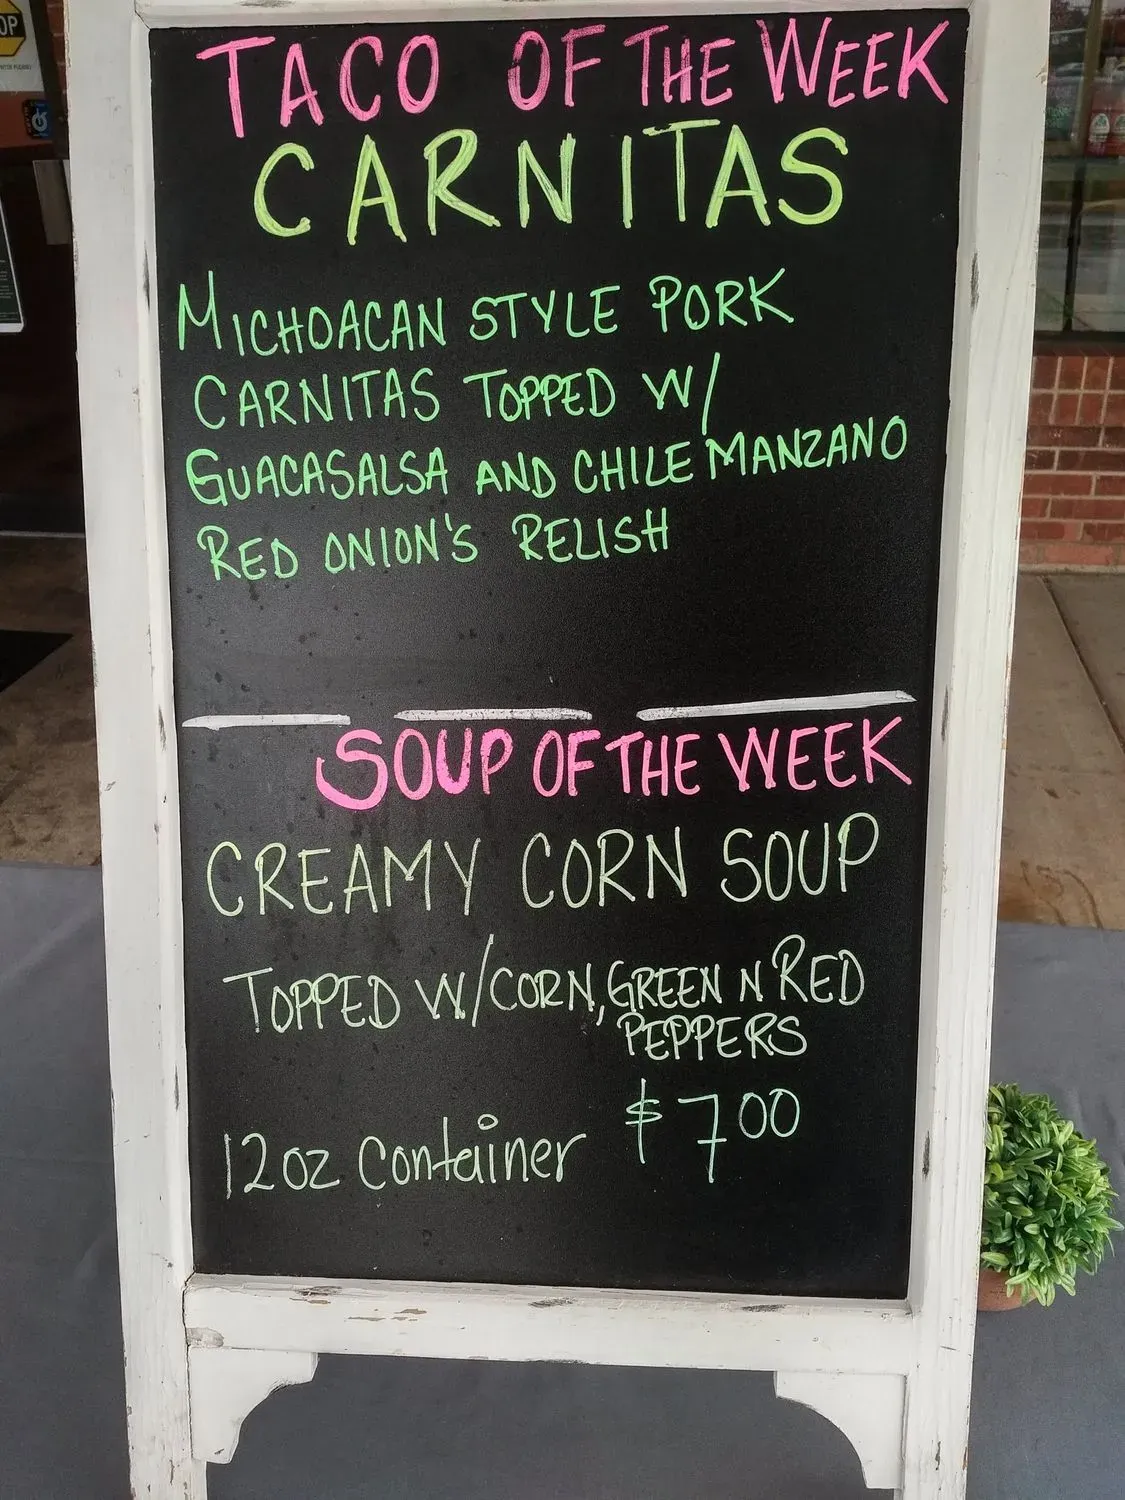 TACO OF THE WEEK
CARNITAS
MICHOACAN STYLE PORK
CARNITAS TOPPED W/
GUACASALSA AND CHILE MANZANO
RED ONION'S RELISH
SOUP OF THE WEEK
CREAMY CORN SOUP
TOPPED W/CORN, GREEN N RED
PEPPERS
$700
12oz Container